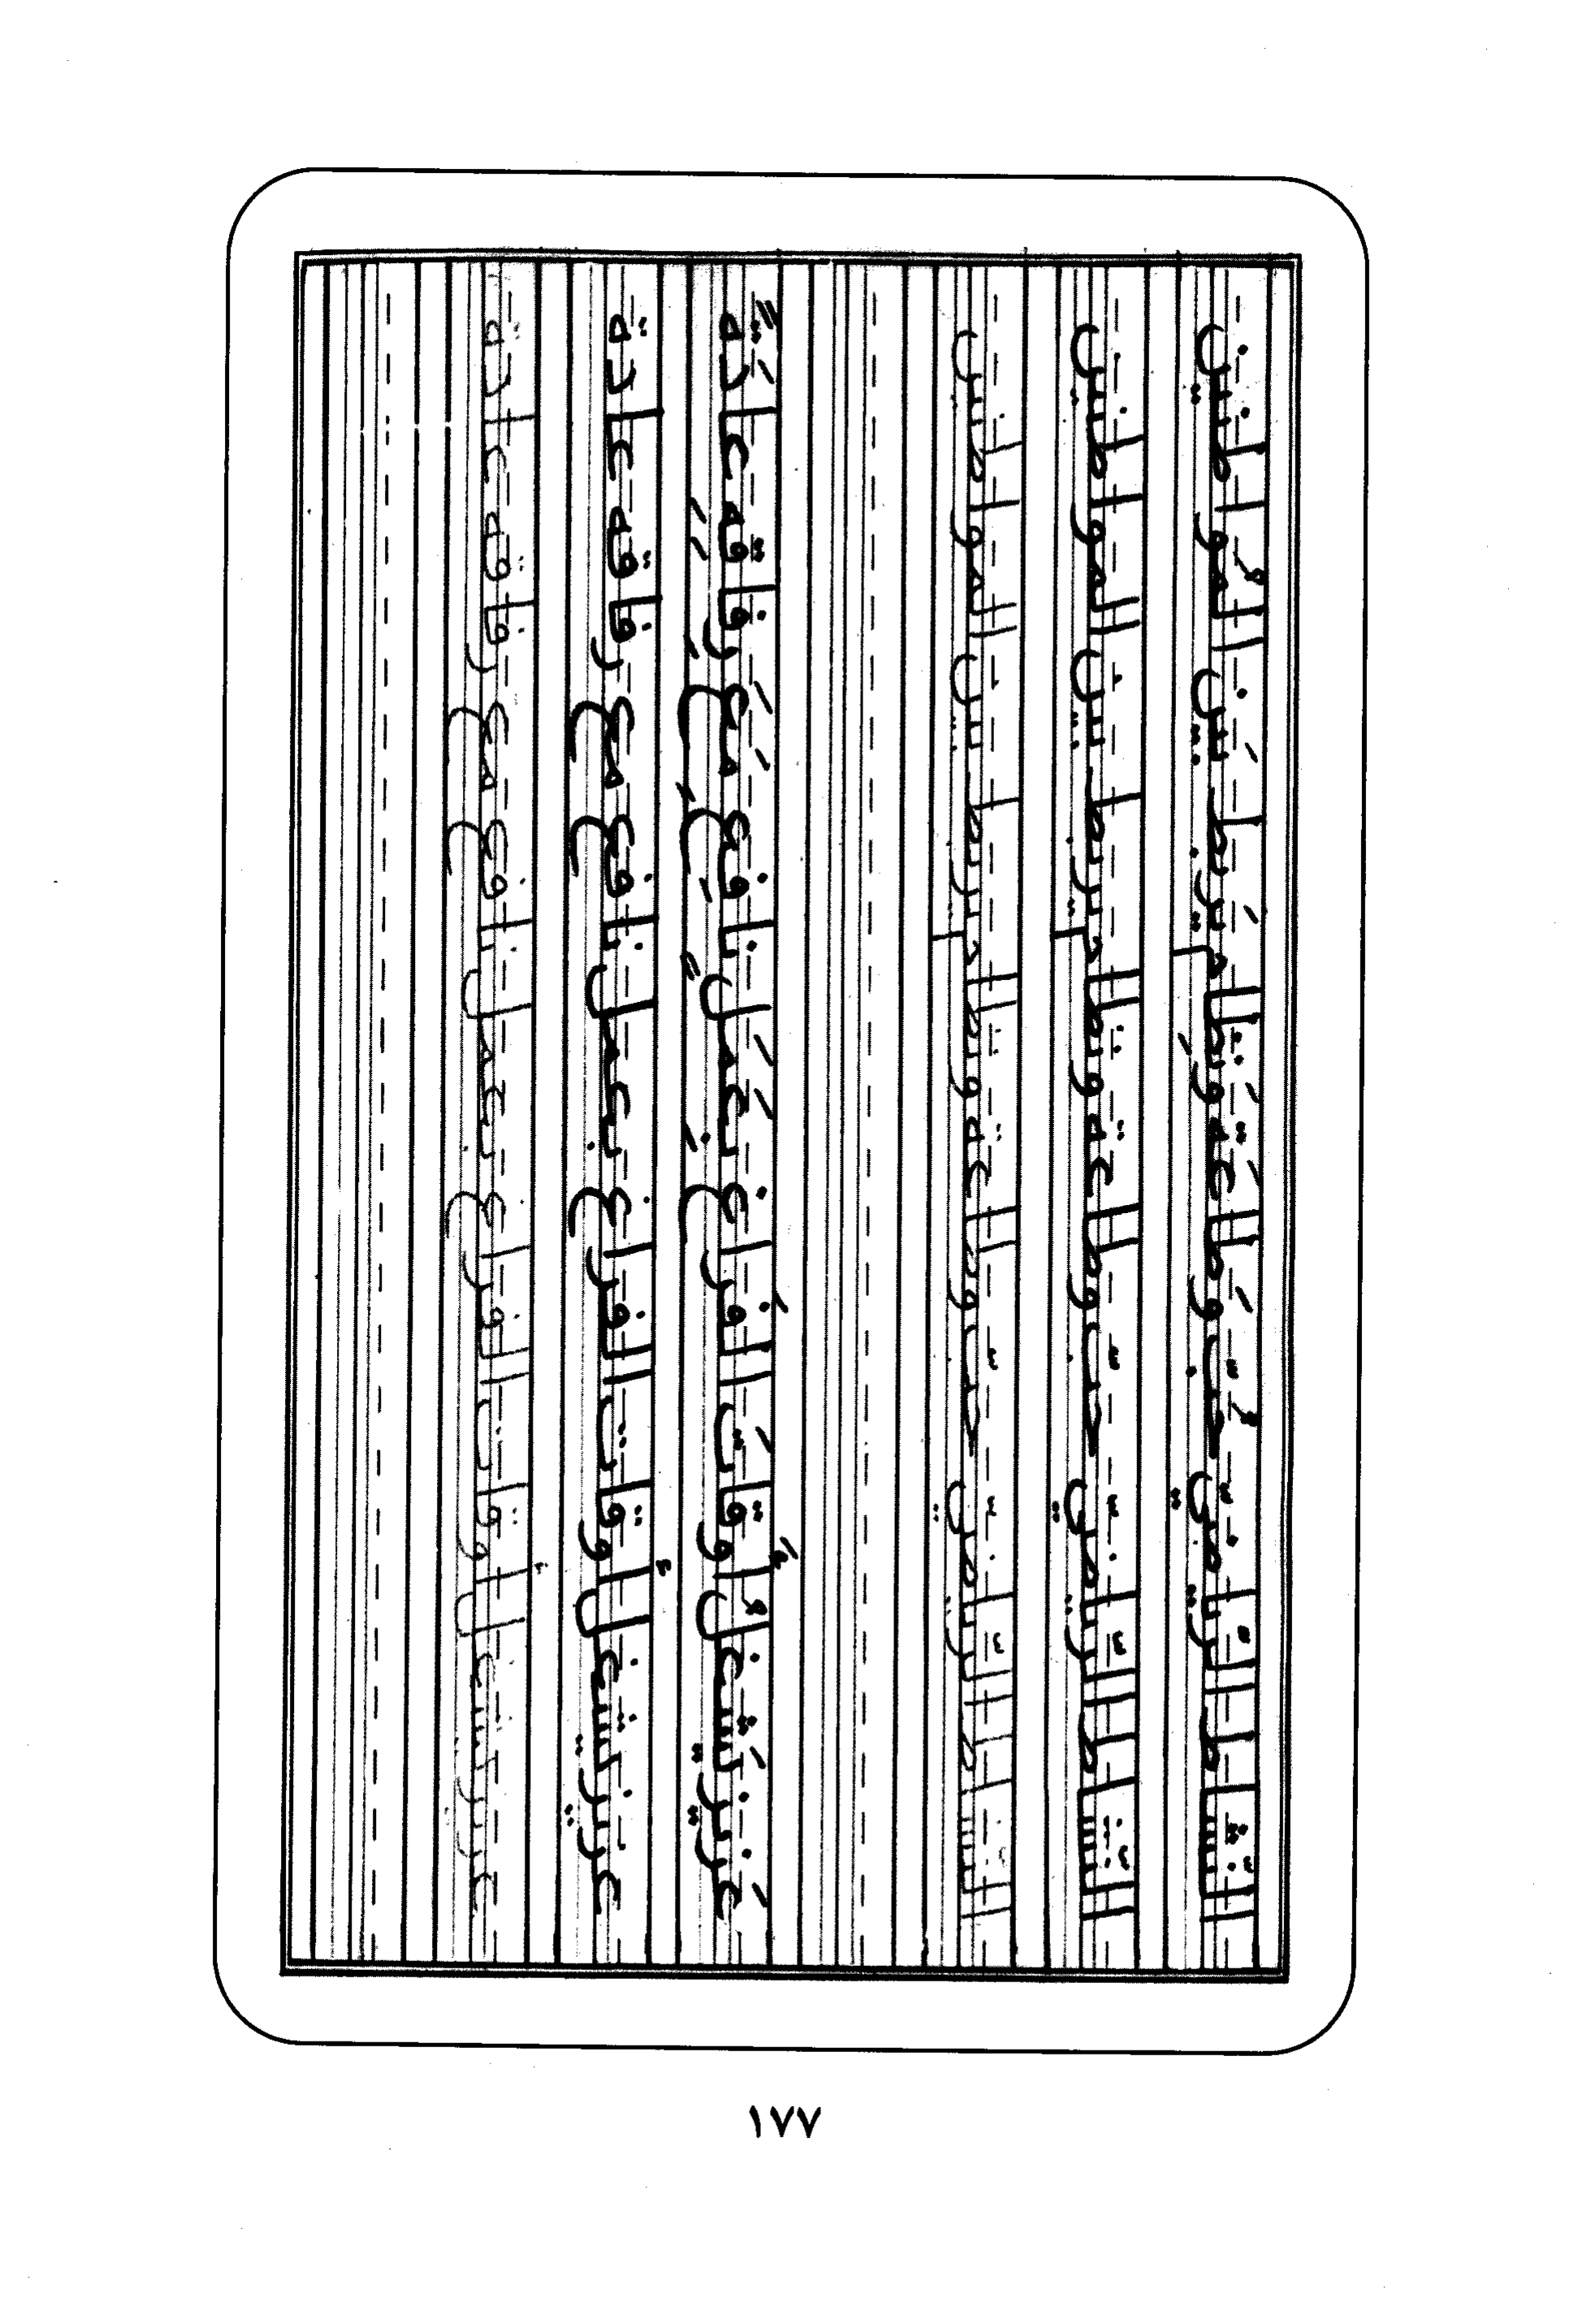 النّشاط الرّياضيّ حُبّ وَطاعَة وَنِظام يَربط بَين المُواطنين
النّشاط الرّياضيّ حبّ وطاعة ونظام يربط بين المواطنين
النشاط الرّياضيّ حبّ وطاعة ونظام يربط بين المواطنين
عَزيز يَشغلُ أَوقاتَ الفَراغِ بِعَمَلٍ نافِعٍ مَعَ رِفاقِهِ عادَةً
عزيز يشغل أوقات الفراغ بعمل نافع مع رفاقه عادة
عزيز يشغل أوقات الفراغ بعمل نافع مع رفاقه عادة
١٧٧